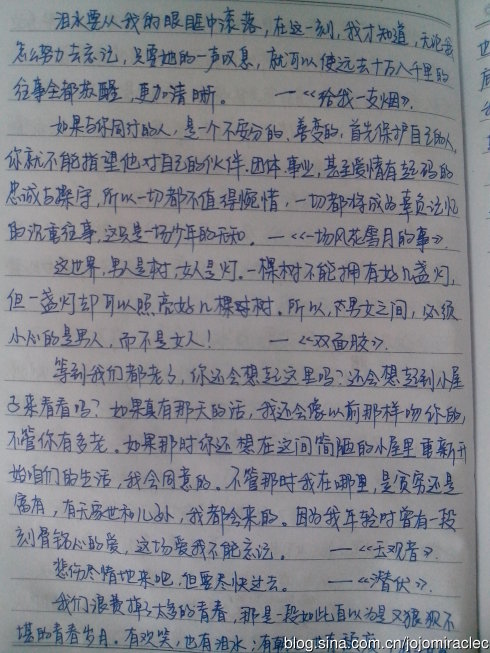 泪水要从我的眼眶中滚落，在这一刻，我才知道，无论会
怎么努力去忘记，只要她的一声叹息，就可以使远去十万八千里的
往事全都苏醒，更加清晰。 —《给我一支烟》.
如果与你同行的人，是一个不安分的、善变的，首先保护自己的人，
你就不能指望他对自己的伙伴.团体.事业，甚至爱情有起码的
忠诚与操守，所以一切都不值得惋惜，一切都将成为辜负记忆
的沉重往事，这只是一场少年的无知。 —《一场风花雪月的事》
这世界，男人是树，女人是灯.一棵树不能拥有好几盏灯，
但一盏灯却可以照亮好几棵树。所以，男女之间，必须
小心的是男人，而不是女人！ —《双面胶》.
等到我们都老了，你还会想起这里吗？还会想起到小屋
子来看看吗？如果真有那天的话，我还会像以前那样吻你的，
不管你有多老。如果那时你还想在这间简陋的小屋里重新开
始咱们的生活，我会同意的。不管那时我在哪里，是贫穷还是
富有，有无家世和儿孙，我都会来的。因为我年轻时曾有一段
刻骨铭心的爱，这场爱我不能忘记。 —《玉观音》.
悲伤尽情地来吧，但要尽快过去。 —《潜伏》.
我们浪费掉了太多的青春，那是一段如此自以为是又狼狈不
堪的青春岁月。有欢笑，也有泪水；有朝
blog.sina.com.cn/jojomiraclec